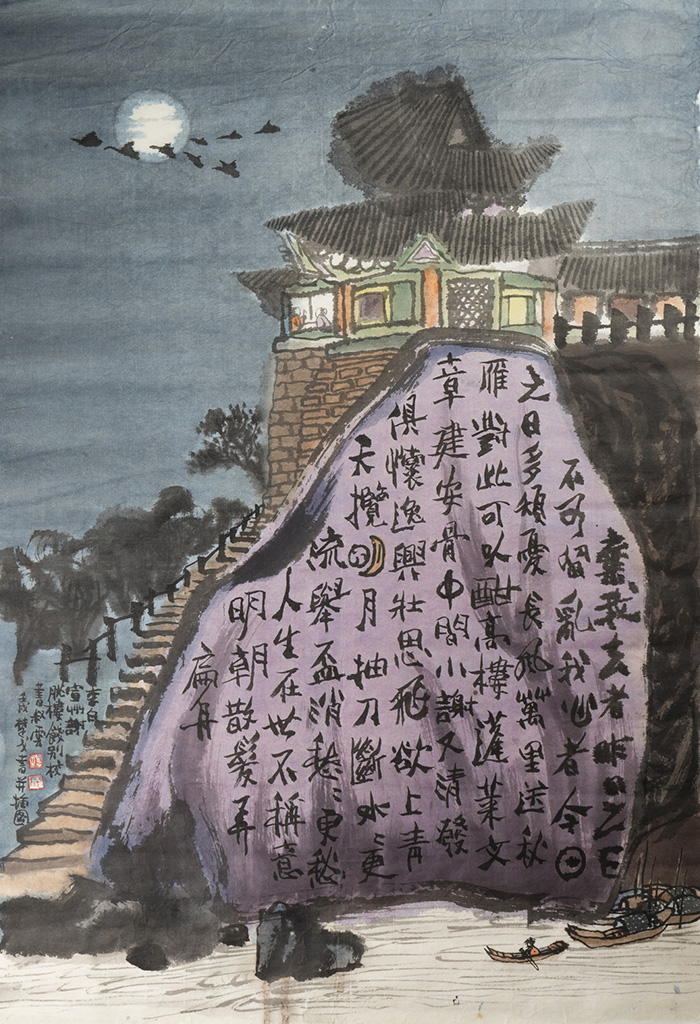 棄我去者昨日之日
不可留亂我心者今日
之日多煩憂長風萬里送秋
雁對此可以酣高樓蓬萊文
章建安骨中間小謝又清發
俱懷逸興壯思飛欲上青
天攬明月抽刀斷水〻更
流舉盃消愁〻更愁
人生在世不稱意
明朝散髮弄
扁舟
李白
宣州謝
朓樓餞別校
書叔雲
書并插圖